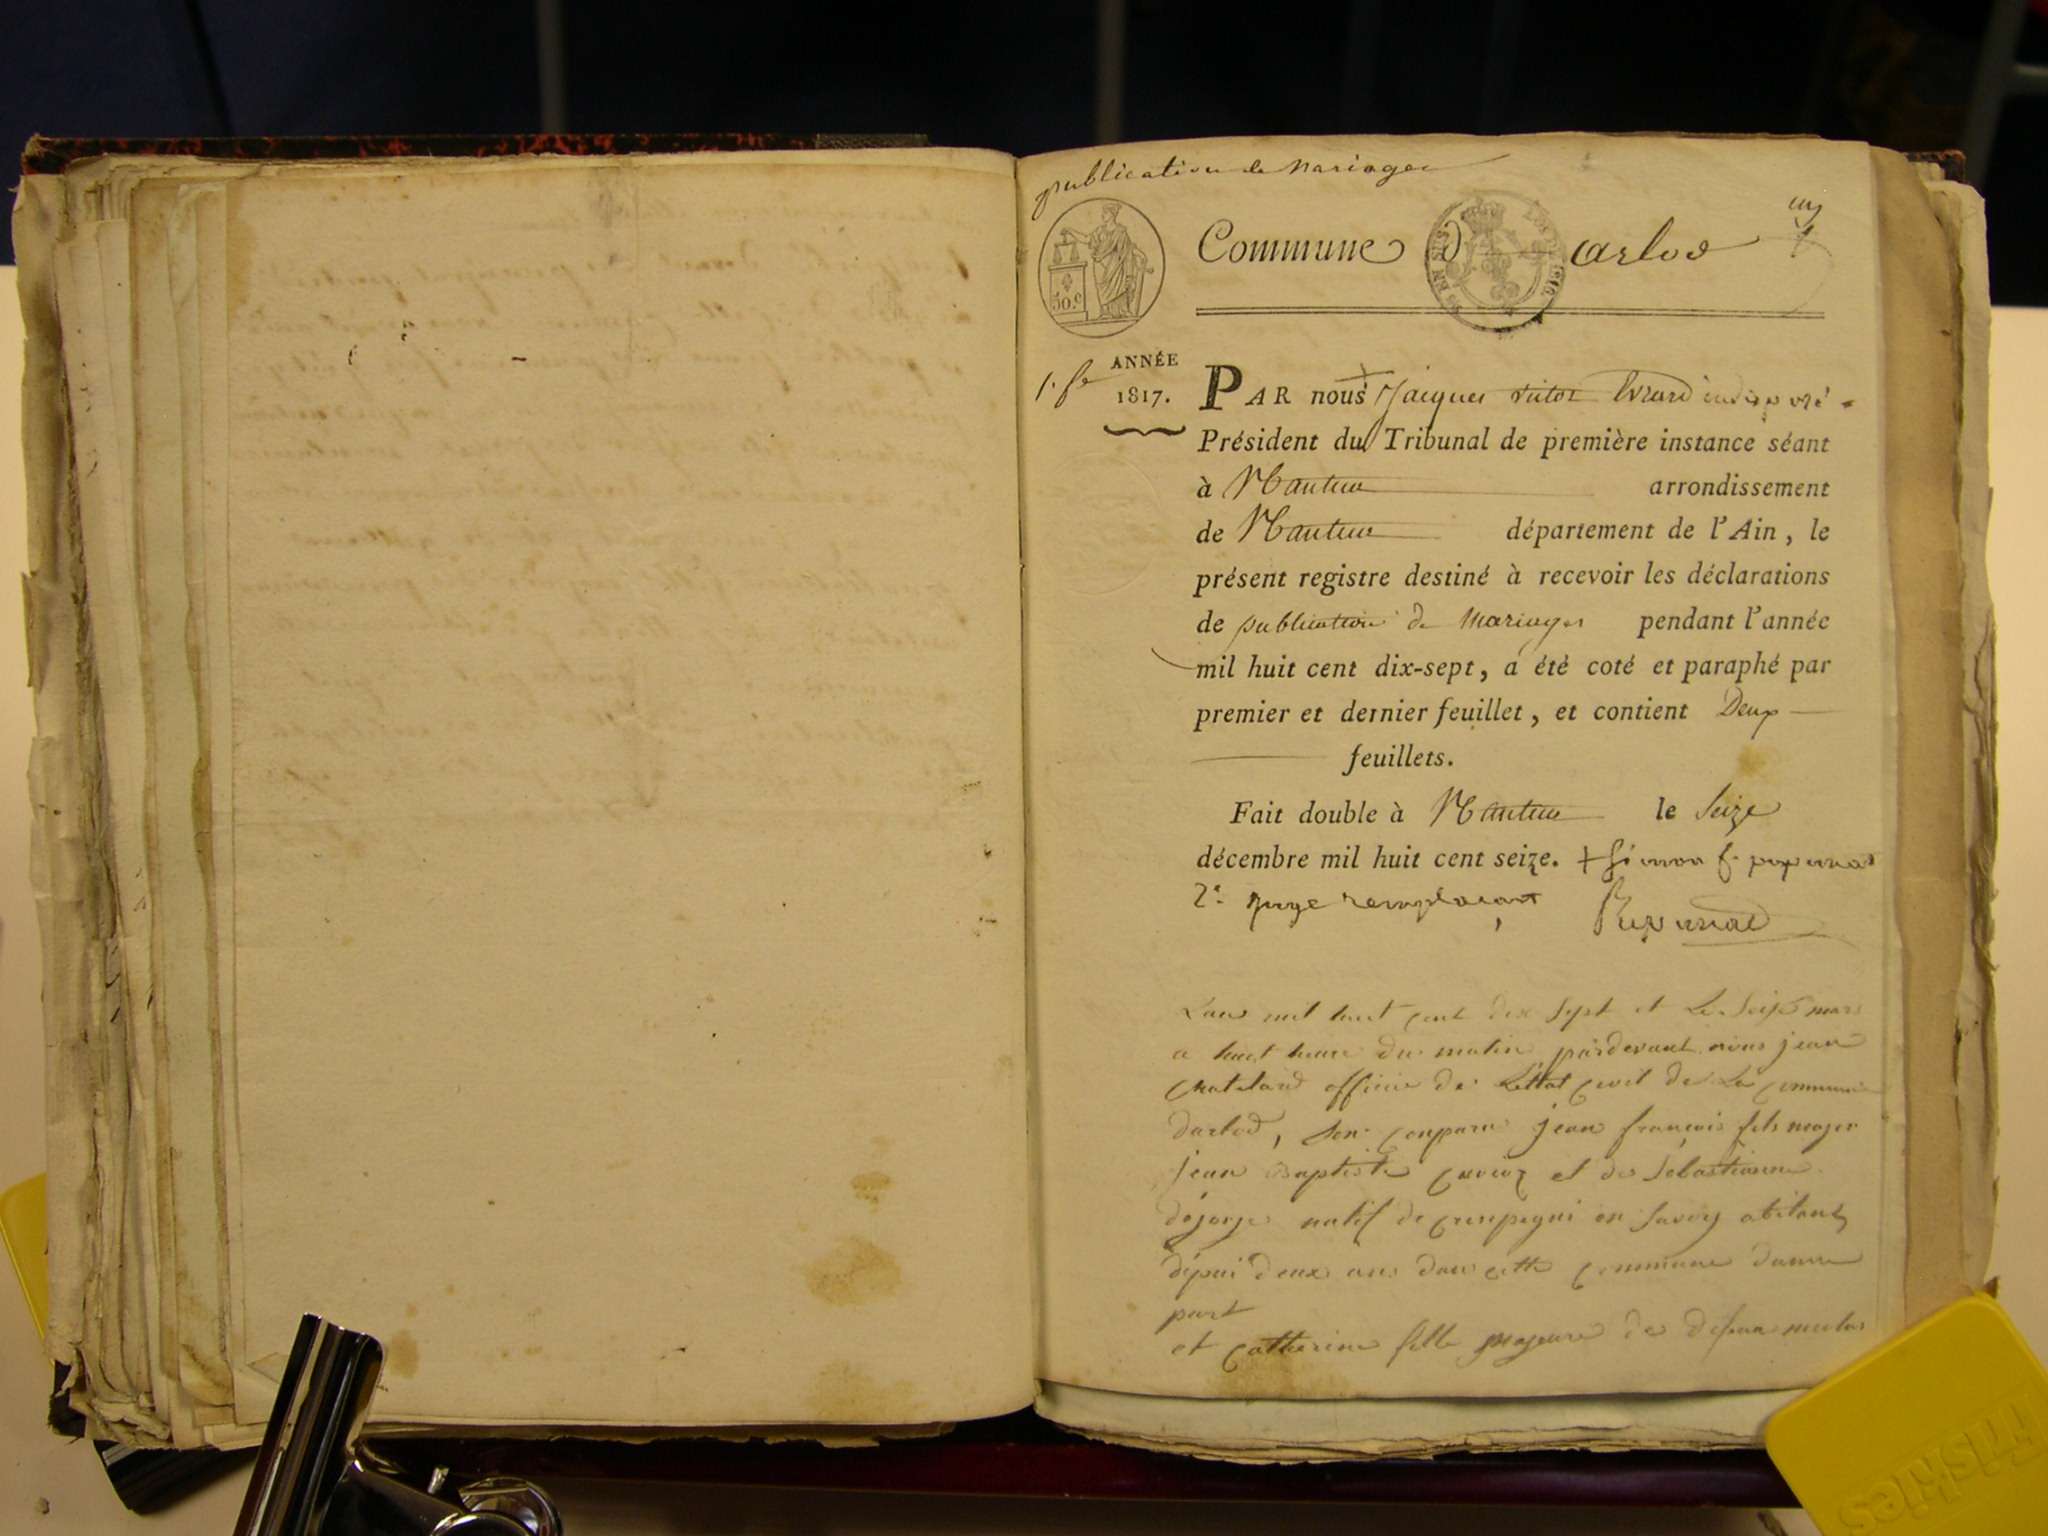 publication de Mariages
Commune d arlod
50.c
EN SUS
1.er f.e
ANNÉE
1817.
PAR nous + Jacques victor Evrard indisposé
Président du Tribunal de première instance séant
à Nantua arrondissement
de Nantua département de l'Ain, le
présent registre destiné à recevoir les déclarations
de publication de Mariages pendant l'année
mil huit cent dix-sept, a été coté et paraphé par
premier et dernier feuillet, et contient Deux
feuillets.
Fait double à Nantua le Seize
décembre mil huit cent seize. + Simon f.
2.e juge remplacant
Lan mil huit cent dix sept et le seize mars
a huit heure du matin pardevant nous jean
Chateland officie de Lettat civil de La commune
darlod, son conparu jean françois fils major
jean Baptiste et de Sebastienne
natif de en Savoy abitant
depui deux ans dans cette commune dunne
part
et Catherine fille majeure de defun
Friskies